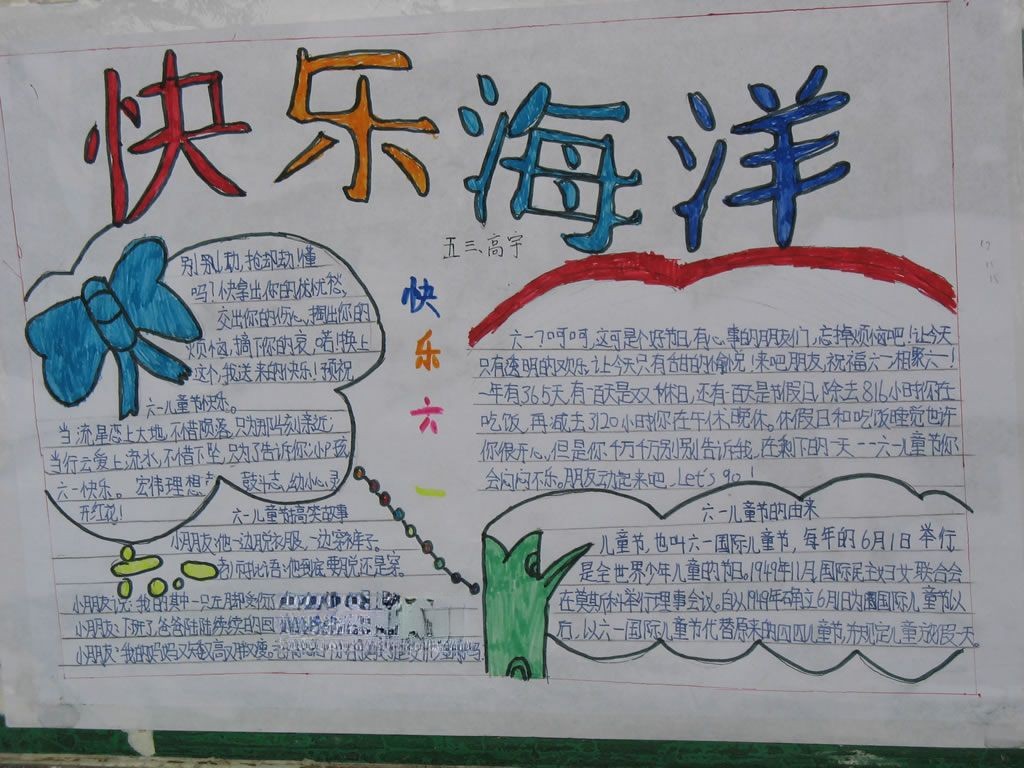 快乐海洋
五三、高宇
快乐六一
别别动,抢劫劫!懂
吗?快拿出你的优忧愁,
交出你的伤心,掏出你的
烦恼,摘下你的哀,喏!换上
这个,我送来的快乐!预祝
六一儿童节快乐。
当流星恋上大地,不惜陨落,只为那一刻亲近;
当行云爱上流水,不惜下坠,只为了告诉你:小孩
六一快乐。宏伟理想 鼓斗志,幼小心灵
开红花!
六一儿童节搞笑故事
小朋友:他一边脱衣服,一边穿裤子。
老师批语:他到底要脱还是穿。
小朋友说:我的其中一只左脚受伤
小朋友:下班了,爸爸陆陆续续的回
小朋友:我的妈妈又矮又高又胖又瘦。
六一?呵呵,这可是个好节日,有心事的朋友们,忘掉烦恼吧!让今天
只有透明的欢乐,让今天只有自由的愉悦!来吧朋友,祝福六一,相聚六一!
一年有365天,有一百天是双休日,还有一百天是节假日,除去816小时你在
吃饭,再减去3120小时你在午休、晚休。休假日和吃饭睡觉也许
你很开心,但是你千万千万别别告诉我,在剩下的一天--六一儿童节你
会闷闷不乐。朋友动起来吧,Let's go!
六一儿童节的由来
儿童节,也叫六一国际儿童节,每年的6月1日举行,
是全世界少年儿童的节日。1949年11月,国际民主妇女联合会
在莫斯科举行理事会议。自从1949年确立6月1日为国际儿童节以
后,以六一国际儿童节代替原来的四四儿童节,并规定儿童放假一天。